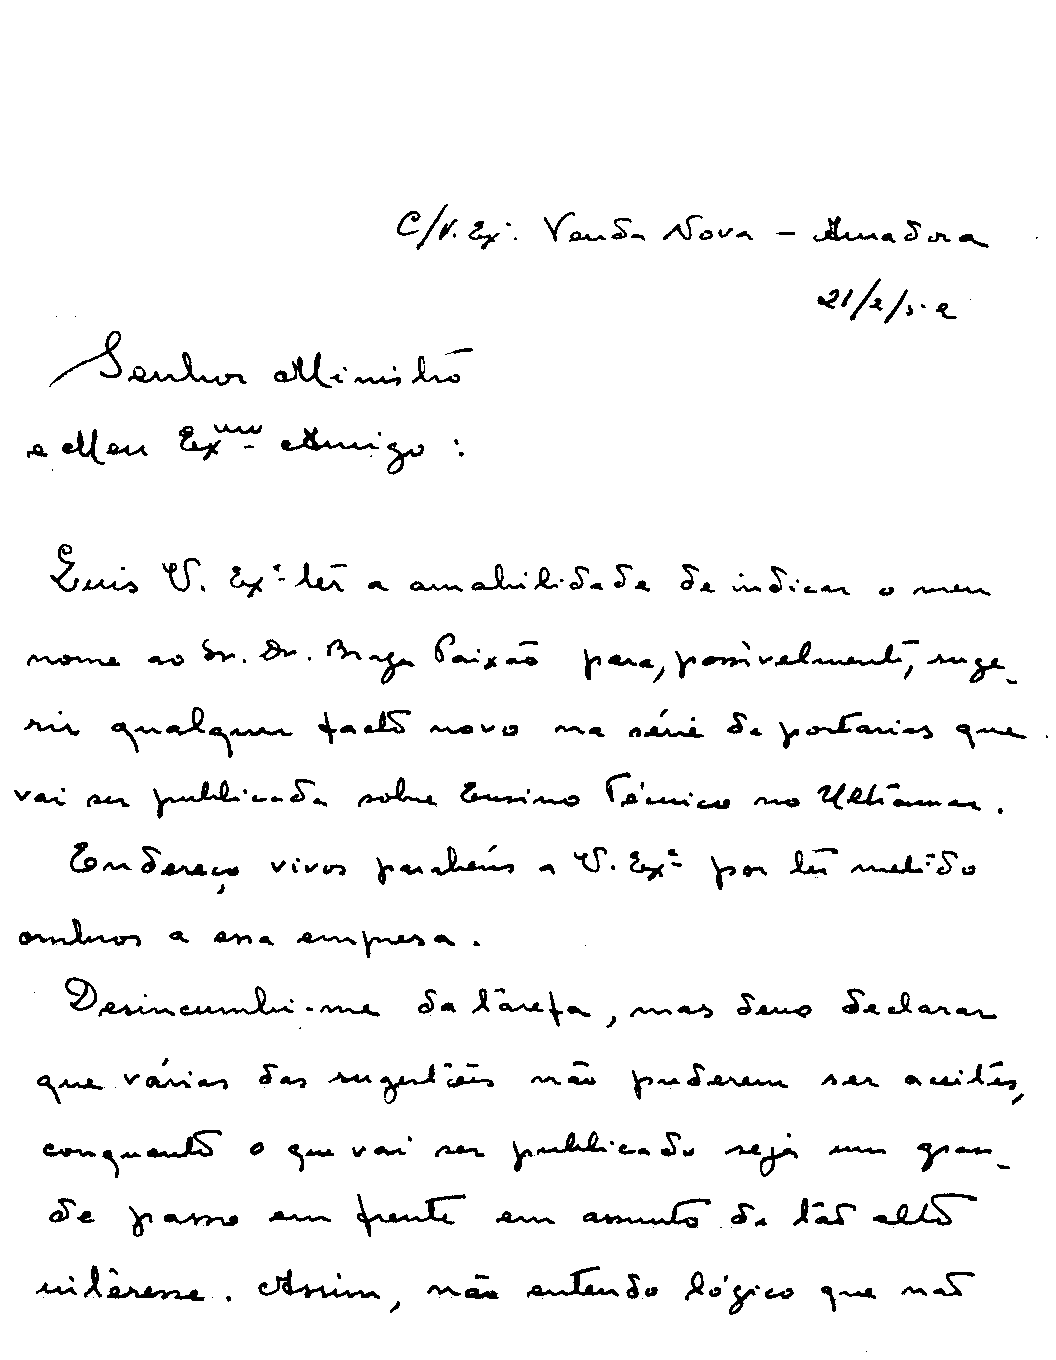 C/V. Exª. Venda Nova - Amadora
21/2/52
Senhor Ministro
e Meu Exmo Amigo:
Quis V. Exª ter a amabilidade de indicar o meu
nome ao Sr. Dr. Braga Paixão para, possivelmente, suge-
rir qualquer facto novo na série de portarias que
vai ser publicada sobre Ensino Técnico no Ultramar.
Endereço vivos parabéns a V. Exª por ter metido
ombros a essa empresa.
Desincumbi-me da tarefa, mas devo declarar
que várias das sugestões não puderem ser aceites,
conquanto o que vai ser publicado seja um gran-
de passo em frente em assunto de tão alto
interêsse. Assim, não entendo lógico que não